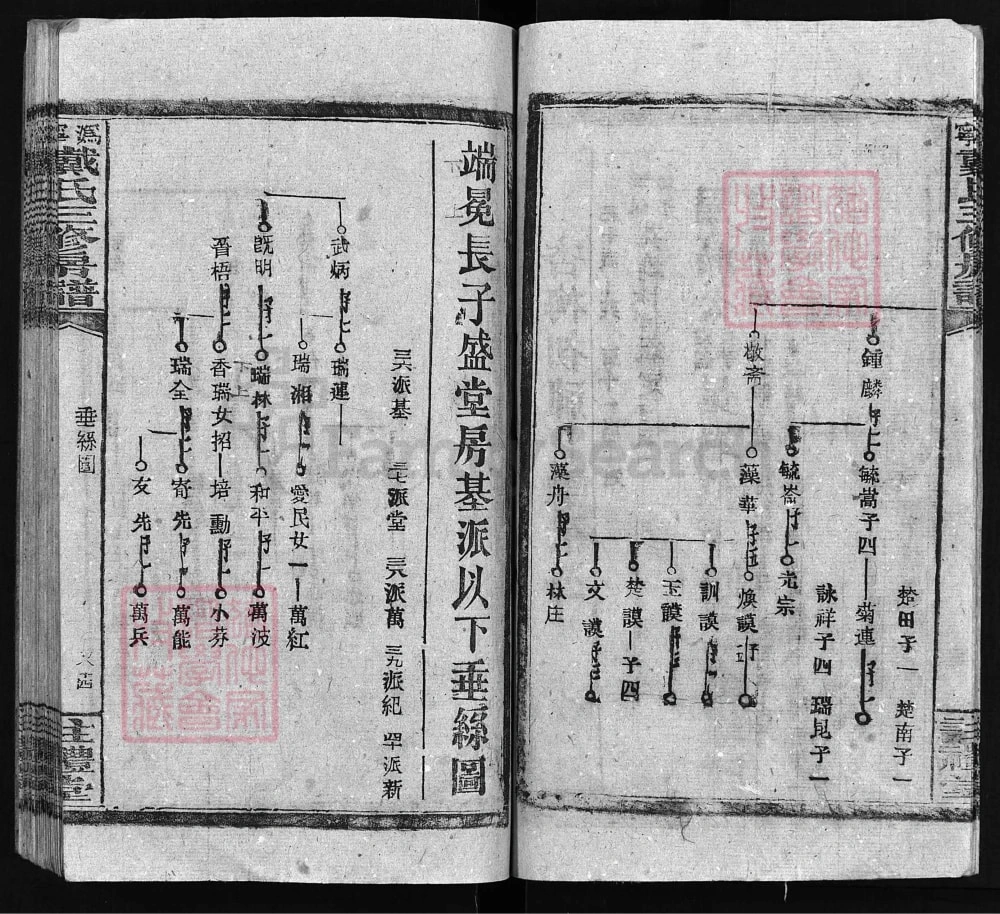 楚田子一 楚南子一
鍾麟 毓嵩子四 菊連
詠祥子四 瑞昆子一
毓崙 光宗
敬斋 藻華 煥謨
訓謨
玉謨
楚謨 子四
文謨
藻舟 林庄
端冕長子盛堂房基派以下垂絲圖
三六派基 三七派堂 三八派萬 三九派紀 四十派新
武炳 瑞蓮
瑞湘 愛民女一 萬紅
既明 瑞林 和平 萬波
晉梧 香瑞女招 培勳 小芬
瑞全 寄先 萬能
友先 萬兵
潙寧戴氏三修房譜
垂絲圖
註禮堂
FamilySearch